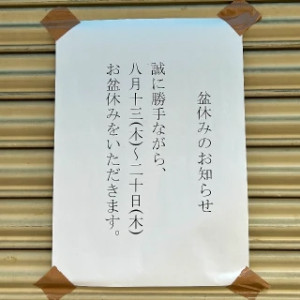 盆休みのお知らせ
誠に勝手ながら、
八月十三(木)〜二十日(木)
お盆休みをいただきます。